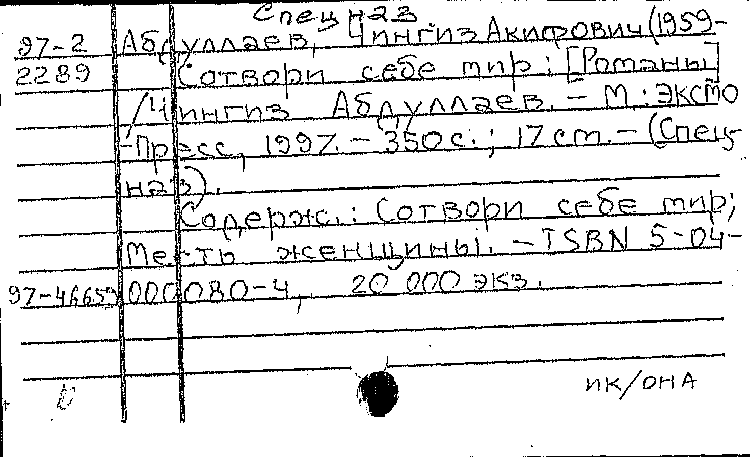 Спецназ
97-2 Абдуллаев, Чингиз Акифович (1959-
2289 Сотвори себе мир: [Романы]
/Чингиз Абдуллаев. – М.: ЭКСМО
-Пресс, 1997. – 350 с.; 17 cm. – (Спец-
наз).
Содерж.: Сотвори себе мир;
Месть женщины. – ISBN 5-04-
97-46659 000080-4, 20 000 экз.
ИК/ОНА